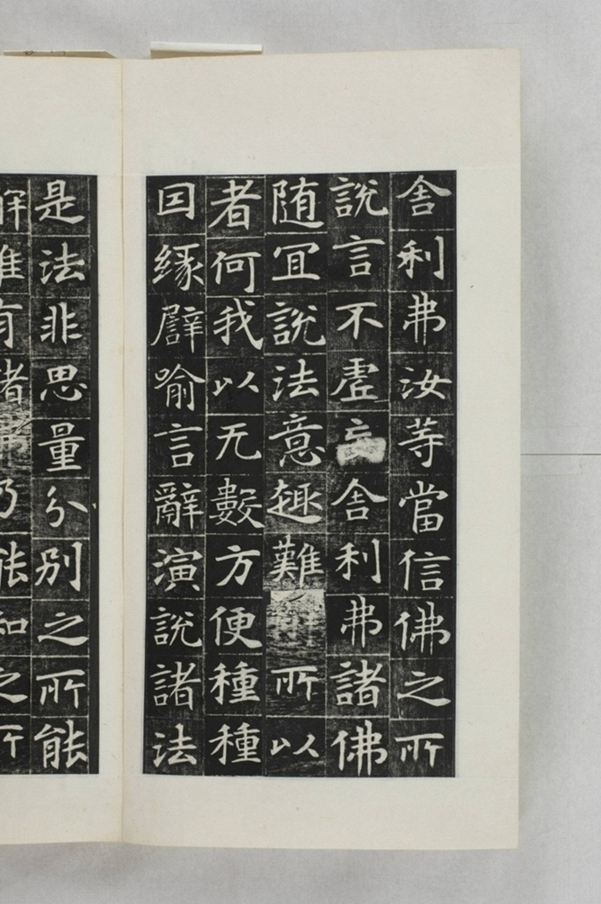 舍利弗汝等當信佛之所
說言不虛妄舍利弗諸佛
随冝說法意趣難所以
者何我以无數方便種種
囙緣譬喻言辭演說諸法
是法非思量分別之所能
解唯有諸乃能知之所